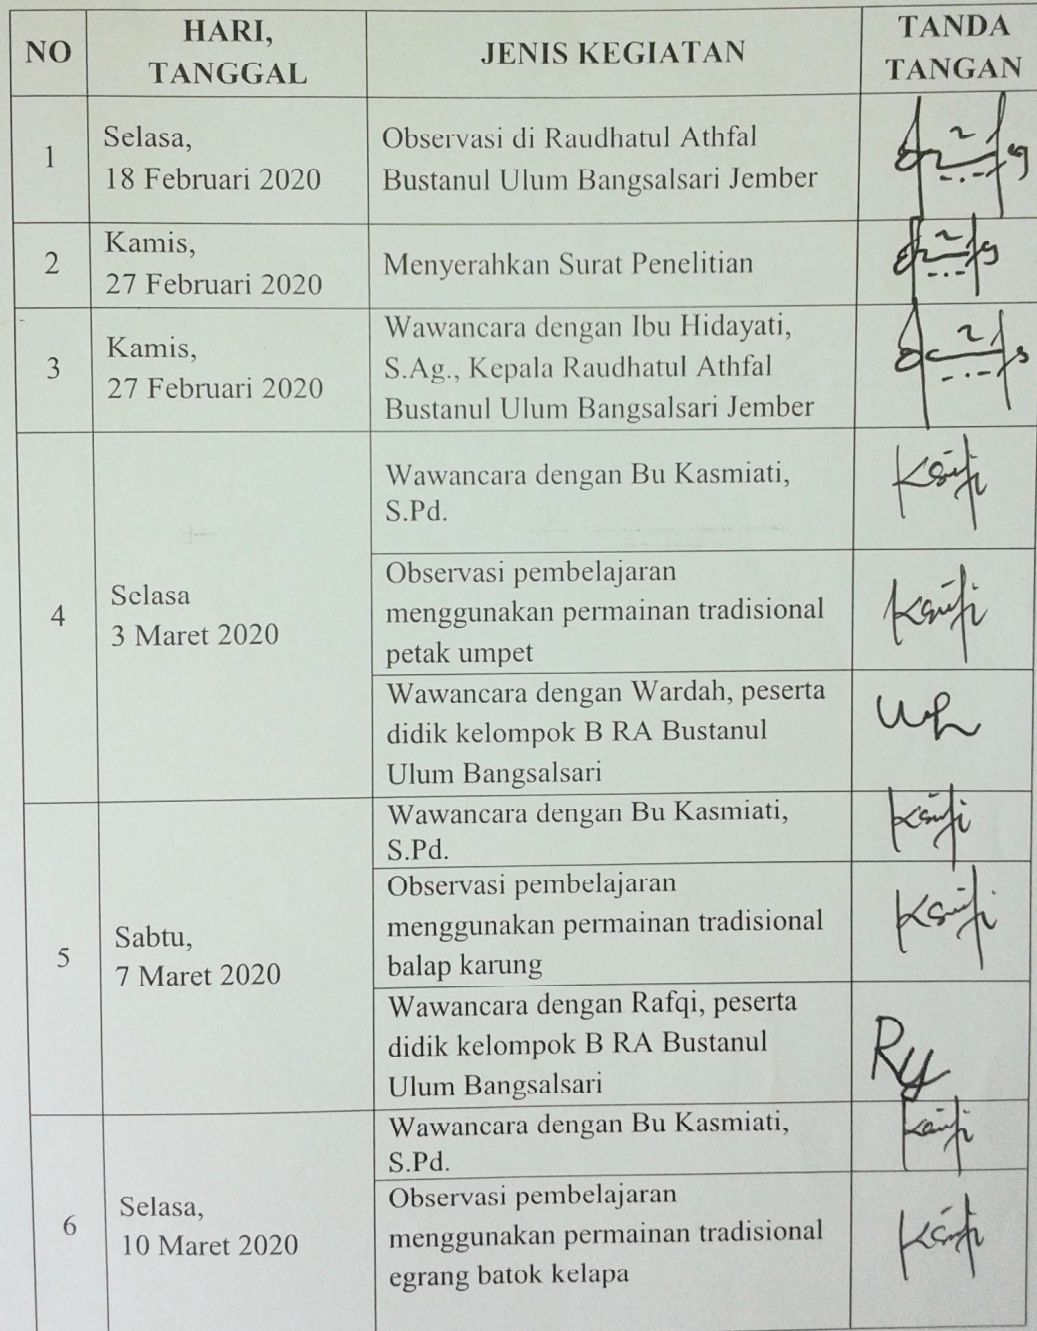 NO
HARI,
TANGGAL
JENIS KEGIATAN
TANDA
TANGAN
1
Selasa,
18 Februari 2020
Observasi di Raudhatul Athfal
Bustanul Ulum Bangsalsari Jember
2
Kamis,
27 Februari 2020
Menyerahkan Surat Penelitian
3
Kamis,
27 Februari 2020
Wawancara dengan Ibu Hidayati,
S.Ag., Kepala Raudhatul Athfal
Bustanul Ulum Bangsalsari Jember
4
Selasa
3 Maret 2020
Wawancara dengan Bu Kasmiati,
S.Pd.
Observasi pembelajaran
menggunakan permainan tradisional
petak umpet
Wawancara dengan Wardah, peserta
didik kelompok B RA Bustanul
Ulum Bangsalsari
5
Sabtu,
7 Maret 2020
Wawancara dengan Bu Kasmiati,
S.Pd.
Observasi pembelajaran
menggunakan permainan tradisional
balap karung
Wawancara dengan Rafqi, peserta
didik kelompok B RA Bustanul
Ulum Bangsalsari
6
Selasa,
10 Maret 2020
Wawancara dengan Bu Kasmiati,
S.Pd.
Observasi pembelajaran
menggunakan permainan tradisional
egrang batok kelapa